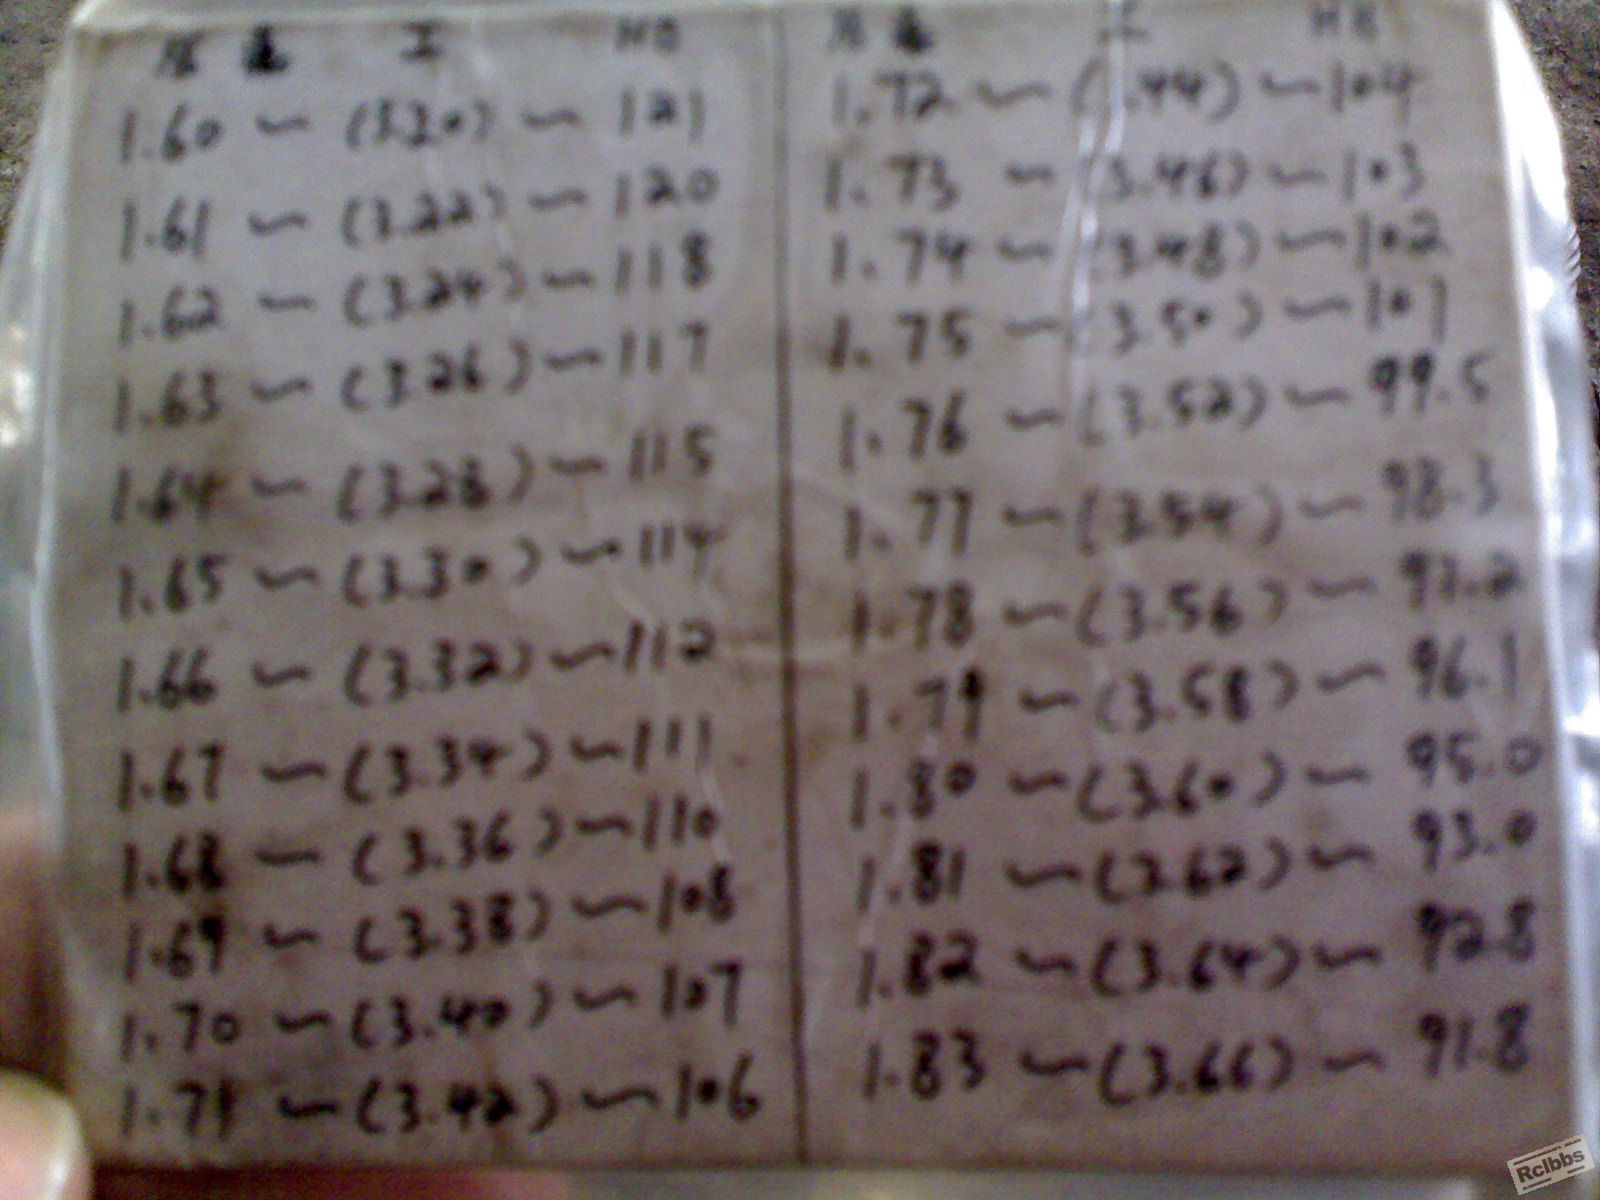 HB
1.60 ~ (3.20) ~ 121
1.61 ~ (3.22) ~ 120
1.62 ~ (3.24) ~ 118
1.63 ~ (3.26) ~ 117
1.64 ~ (3.28) ~ 115
1.65 ~ (3.30) ~ 114
1.66 ~ (3.32) ~ 112
1.67 ~ (3.34) ~ 111
1.68 ~ (3.36) ~ 110
1.69 ~ (3.38) ~ 108
1.70 ~ (3.40) ~ 107
1.71 ~ (3.42) ~ 106
HB
1.72 ~ ( .44) ~ 104
1.73 ~ (3.46) ~ 103
1.74 ~ (3.48) ~ 102
1.75 ~ (3.50) ~ 101
1.76 ~ (3.52) ~ 99.5
1.77 ~ (3.54) ~ 98.3
1.78 ~ (3.56) ~ 97.2
1.79 ~ (3.58) ~ 96.1
1.80 ~ (3.60) ~ 95.0
1.81 ~ (3.62) ~ 93.0
1.82 ~ (3.64) ~ 92.8
1.83 ~ (3.66) ~ 91.8
Rclbbs